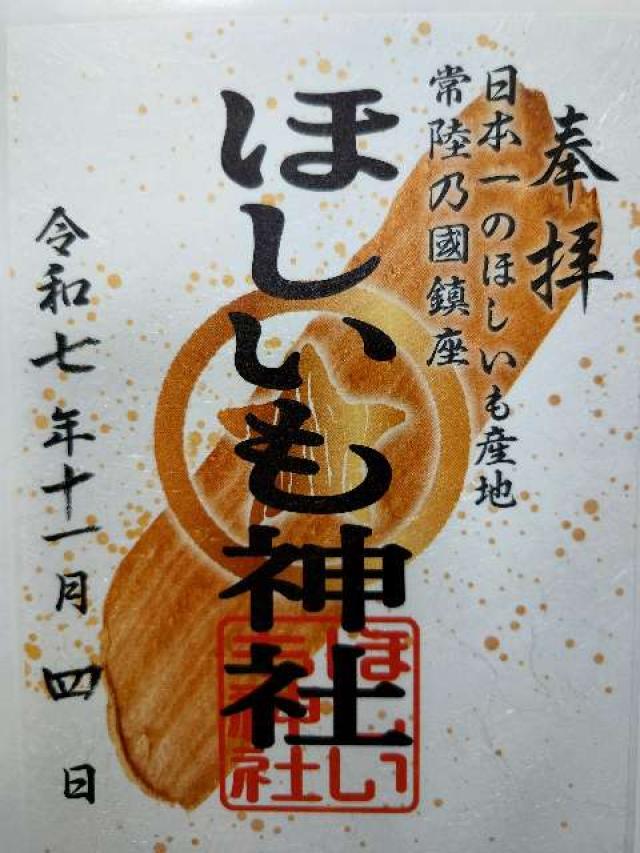 奉拝
日本一のほしいも産地
常陸乃國鎮座
ほしいも神社
ほしい
も神社
令和七年十一月四日